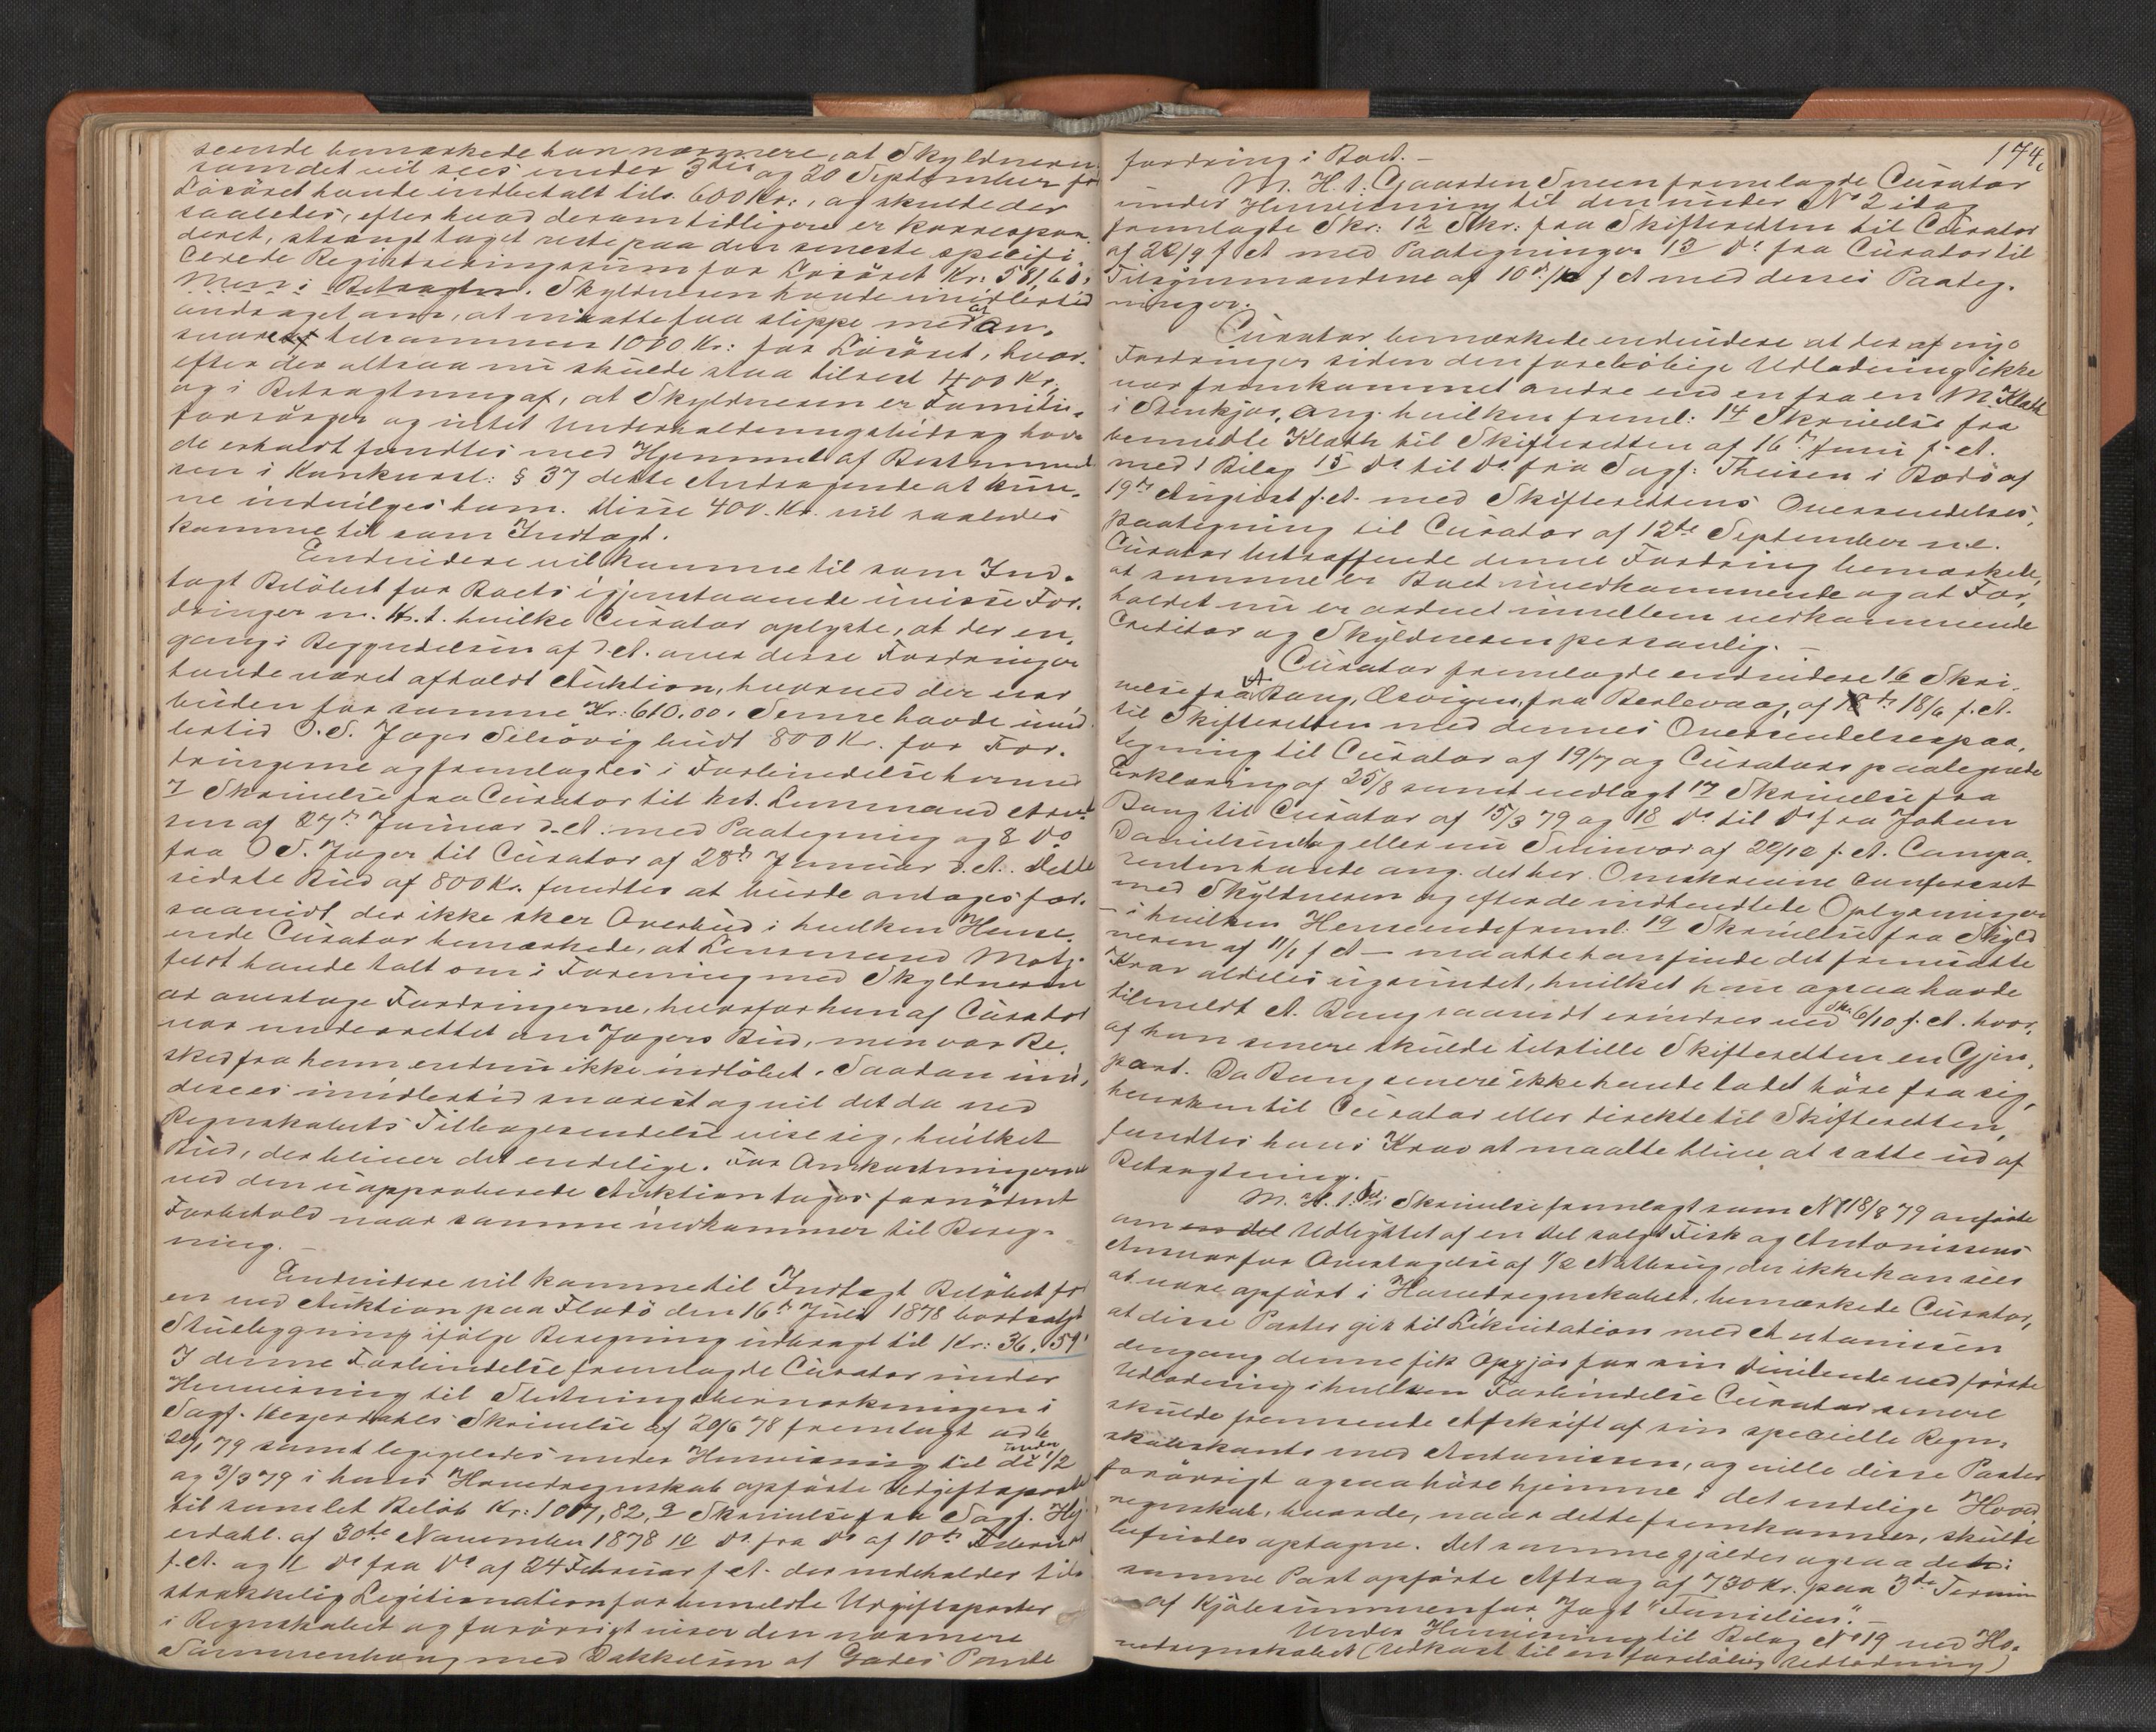 seende bemærkede han nærmere, at Skyldneren
som det vil sees under 3die og 20 September for
Løsøret havde indbetalt tils. 600 Kr., og skulde der
saaledes, efter hvad derom tidligere er korrespon-
deret, strængt taget reste paa den seneste specifi-
cerede Registreringssum for Løsøret Kr: 581,60,
Men i Betragtn. Skyldneren havde imidlertid
andraget om, at maatte faa slippe med at an-
svare tilsammen 1000 Kr: for Løsøret, hvor-
efter der altsaa nu skulde staa tilrest 400 Kr.
og i Betragtning af, at Skyldneren er Familie-
forsørger og intet Underholdningsbidrag hav-
de erholdt fandtes med Hjemmel af Bestemmel-
sen i Konkursl: § 37 dette Andragende at kun-
ne indvilges ham. Disse 400 Kr. vil saaledes
komme til som Indtægt.
Endvidere vil komme til som Ind-
tægt Beløbet for Boets igjenstaaende uvisse For-
dringer m. H. t. hvilke Curator oplyste, at der en-
gang i Begyndelsen af d. A. over disse Fordringer
havde været afholdt Auktion, hvorved der var
buden for samme Kr: 610,00. Senere havde imid-
lertid O. S. Jager Selsøvig budt 800 Kr. for For-
dringerne og fremlagdes i Forbindelse hermed
7 Skrivelse fra Curator til kst. Lensmand
sen af 27de Januar d. A. med Paategning og 8 Do
fra O. S. Jager til Curator af 28de Januar d. A. Dette
sidste Bud af 800 Kr. fandtes at burde antages for-
saavidt der ikke sker Overbud i hvilken Hense-
ende Curator bemærkede, at Lensmand Motz-
feldt havde talt om i Forening med Skyldneren
at overtage Fordringerne, hvorfor han af Curator
var underrettet om Jagers Bud, men var Be-
sked fra ham endnu ikke indløbet. Saadan imø-
desees imidlertid snarest og vil det da ved
Regnskabets Tilbagesendelse vise sig, hvilket
Bud, der bliver det endelige. For Omkostningerne
ved den uapproberede Auktion tages fornødent
Forbehold naar samme indkommer til Bereg-
ning. –
Endvidere vil komme til Indtægt Beløbet for
en ved Auktion paa Flatø den 16de Juli 1878 bortsolgt
Stuebygning ifølge Beregning udbragt til Kr: 36,59
I denne Forbindelse fremlagde Curator under
Henvisning til Slutningsbemærkningen i
Sagf. Hegerdahls Skrivelse af 20/6 78 fremlagt
20/1 79 samt ligeledes under Henvisning til de under 1/2
og 3/3 79 i hans Hovedregnskab opførte Udgiftsposter
til samlet Beløb Kr: 1007,82, 9 Skrivelse fra Sagf. Hej-
erdahl af 30te November 1878 10 Do fra Do af 10de Februar
f. A. og 11 Do fra Do af 24 Februar f. A. der indeholder til-
strækkelig Legitimation for bemeldte Udgiftsposter
i Regnskabet og forøvrigt viser den nærmere
Sammenhæng med Dækkelsen af Gades Pante
174.
fordring i Boet. –
M. H. t. Gaarden Sneen fremlagde Curator
under Henvisning til den under No 2 idag
fremlagte Skr: 12 Skr: fra Skifteretten til Curator
af 22/9 f A med Paategninger 13 Do fra Curator til
Tilsynsmændene af 10de/10 f A med deres Paateg-
ninger.
Curator bemærkede endvidere at der af nye
Fordringer siden den foreløbige Udlodning ikke
var fremkommet andre end en fra en M. Klath
i Stenkjær, ang. hvilken freml: 14 Skrivelse fra
bemeldte Klath til Skifteretten af 16de Juni f. A.
med 1 Bilag 15 Do til Do fra Sagf: Theisen i Bodø af
19de August f. A. med Skifterettens Oversendelses-
paategning til Curator af 12te September s. A.
Curator betræffende denne Fordring bemærkede,
at samme er Boet uvedkommende og at For-
holdet nu er ordnet imellem vedkommende
Creditor og Skyldneren personlig. –
Curator fremlagde endvidere 16 Skri-
velse fra A. Bang, Løsvigen, fra Berlevaag, af 18/6 f. A.
til Skifteretten med dennes Oversendelsespaa-
tegning til Curator af 19/7 og Curators paategnede
Erklæring af 25/8 samt vedlagt 17 Skrivelse fra
Bang til Curator af 15/3 79 og 18 Do til Do fra Johan
Danielsen af 22/12 f. A. Compa-
renten havde ang. det her. Omskrevne confereret
med Skyldneren og efter de indhentede Oplysninger
– i hvilken Henseende freml. 19 Skrivelse fra Skyld-
neren af 11/1 f A – maatte han finde det fremsatte
Krav aldeles ugrundet, hvilket han ogsaa havde
tilmeldt A. Bang saavidt erindres ved Skr. 6/10 f. A. hvor-
af han senere skulde tilstille Skifteretten en Gjen-
part. Da Bang senere ikke havde ladet høre fra sig,
hverken til Curator eller direkte til Skifteretten,
fandtes hans Krav at maatte blive at sætte ud af
Betragtning. –
M. H. t. det i Skrivelse fremlagt som No 18/8 79 anførte
om en del Udbyttet af en Del solgt Fisk og Antonissens
Ansvar for Overtagelse af 1/2 Notbrug, der ikke kan sees
at være opført i Hovedregnskabet, bemærkede Curator,
at disse Poster gik til Likvidation med Antonissen
dengang denne fik Opgjør for sin Dividende ved første
Udlodning i hvilken Forbindelse Curator senere
skulde fremsende Afskrift af sin specielle Regn-
skabskonto med Antonissen, og ville disse Poster
forøvrigt ogsaa høre hjemme i det endelige Hoved-
regnskab, hvorde, naar dette fremkommer, skulde
befindes optagne. Det samme gjælder ogsaa det i
samme Post opførte Afdrag af 730 Kr. paa 3die Termin
af Kjøbesummen for Jagt "Familien". –
Under Henvisning til Bilag No 19 ved Ho-
vedregnskabet (Udkast til en foreløbig Udlodning)